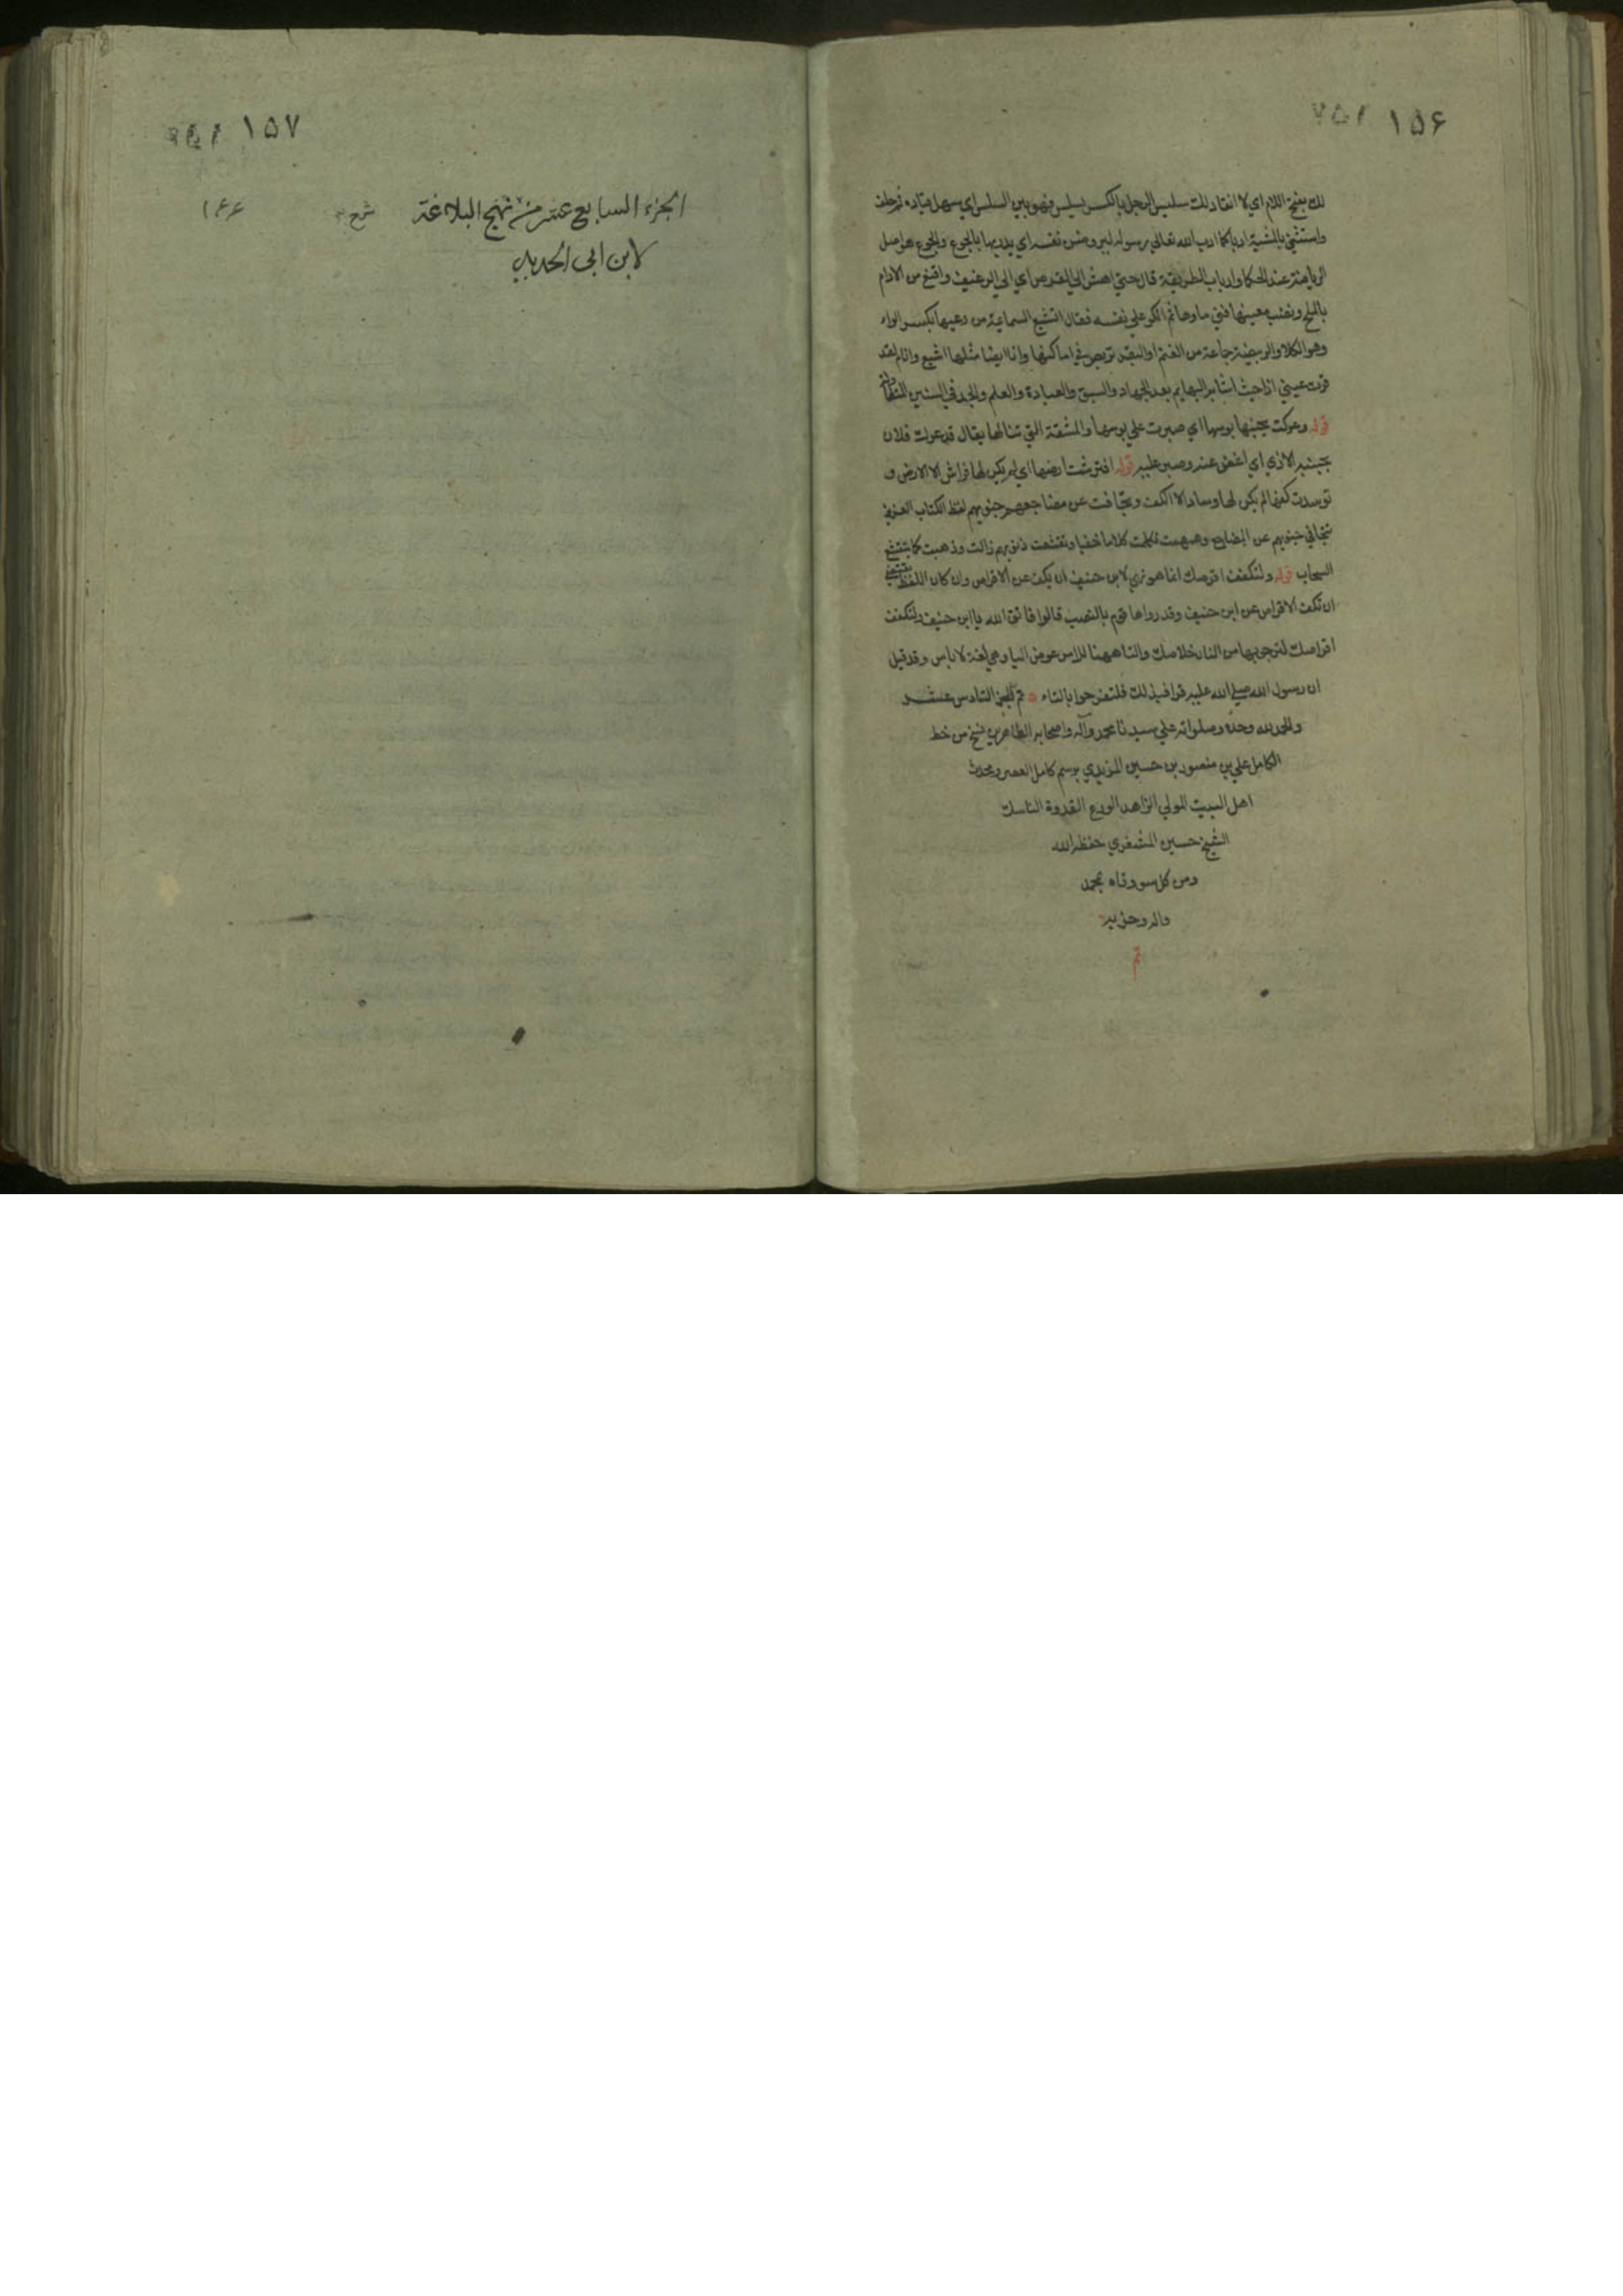 ١٥۶
لك بفتح اللام اي لا انقاد لك سلس الرجل بالكسر يسلس فهو بين السلس اي سهل قياده ثم حلف
واستثنى بالمشية ادبا كما ادب الله تعالى رسوله ليروضن نفسه اي يدربها بالجوع والجوع هو اصل
الرياضة عند الحكما وارباب الطريقة قال حتى اهش الى القرص اي الى الرغيف واقنع من الادام
بالملح ونضب معينها فني ماوها ثم انكر على نفسه فقال اتشبع السماعية من رعيها بكسر الراء
وهو الكلا والربيضة جماعة من الغنم او البقر تربض في اماكنها وانا ايضا مثلها اشبع وانام لقد
قرت عيني اذا حيث اشابه البهايم بعد الجهاد والسبق والعبادة والعلم والجد في السنين المتطاولة
قوله وعركت بجنبها بوسها اي صبرت على بوسها والمشقة التي تنالها يقال قد عرك فلان
بجنبه الاذي اي اغضى عنه وصبر عليه قوله افترشت ارضها اي لم يكن لها فراش الا الارض و
توسدت كفها لم يكن لها وساد الا الكف وتجافت عن مضاجعهم جنوبهم لفظ الكتاب العزيز
تتجافى جنوبهم عن المضاجع وهمهمت تكلمت كلاما خفيا وتقشعت ذنوبهم زالت وذهبت كما يتقشع
السحاب قوله ولتكفف اقرصك انما هو نهي لابن حنيف ان يكف عن الاقراص وان كان اللفظ يقتضي
ان تكف الاقراص عن ابن حنيف وقد رواها قوم بالنصب قالوا فاتق الله يا ابن حنيف ولتكفف
اقراصك لترجو بها من النار خلاصك والتا ههنا للامر عوض اليا وهي لغة لا باس وقد قيل
ان رسول الله صلى الله عليه قرا فبذلك فلتفرحوا بالتاء تم الجزء السادس عشر
والحمد لله وحده وصلواته على سيدنا محمد وآله واصحابه الطاهرين نسخ من خط
الكامل علي بن منصور بن حسين المزيدي برسم كامل العصر ومحدث
اهل البيت المولى الزاهد الورع القدوة الناسك
الشيخ حسين المشغري حفظه الله
ومن كل سو وقاه بمحمد
واله وحزبه
تم
١٥٧
الجزء السابع عشر من نهج البلاغة شرح ١۶۶
لابن ابي الحديد